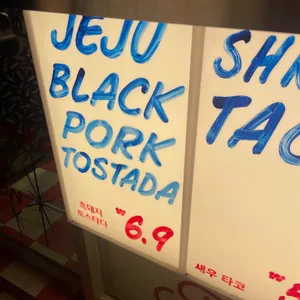 JEJU
BLACK
PORK
TOSTADA
흑돼지
토스타다
₩6.9
새우 타코